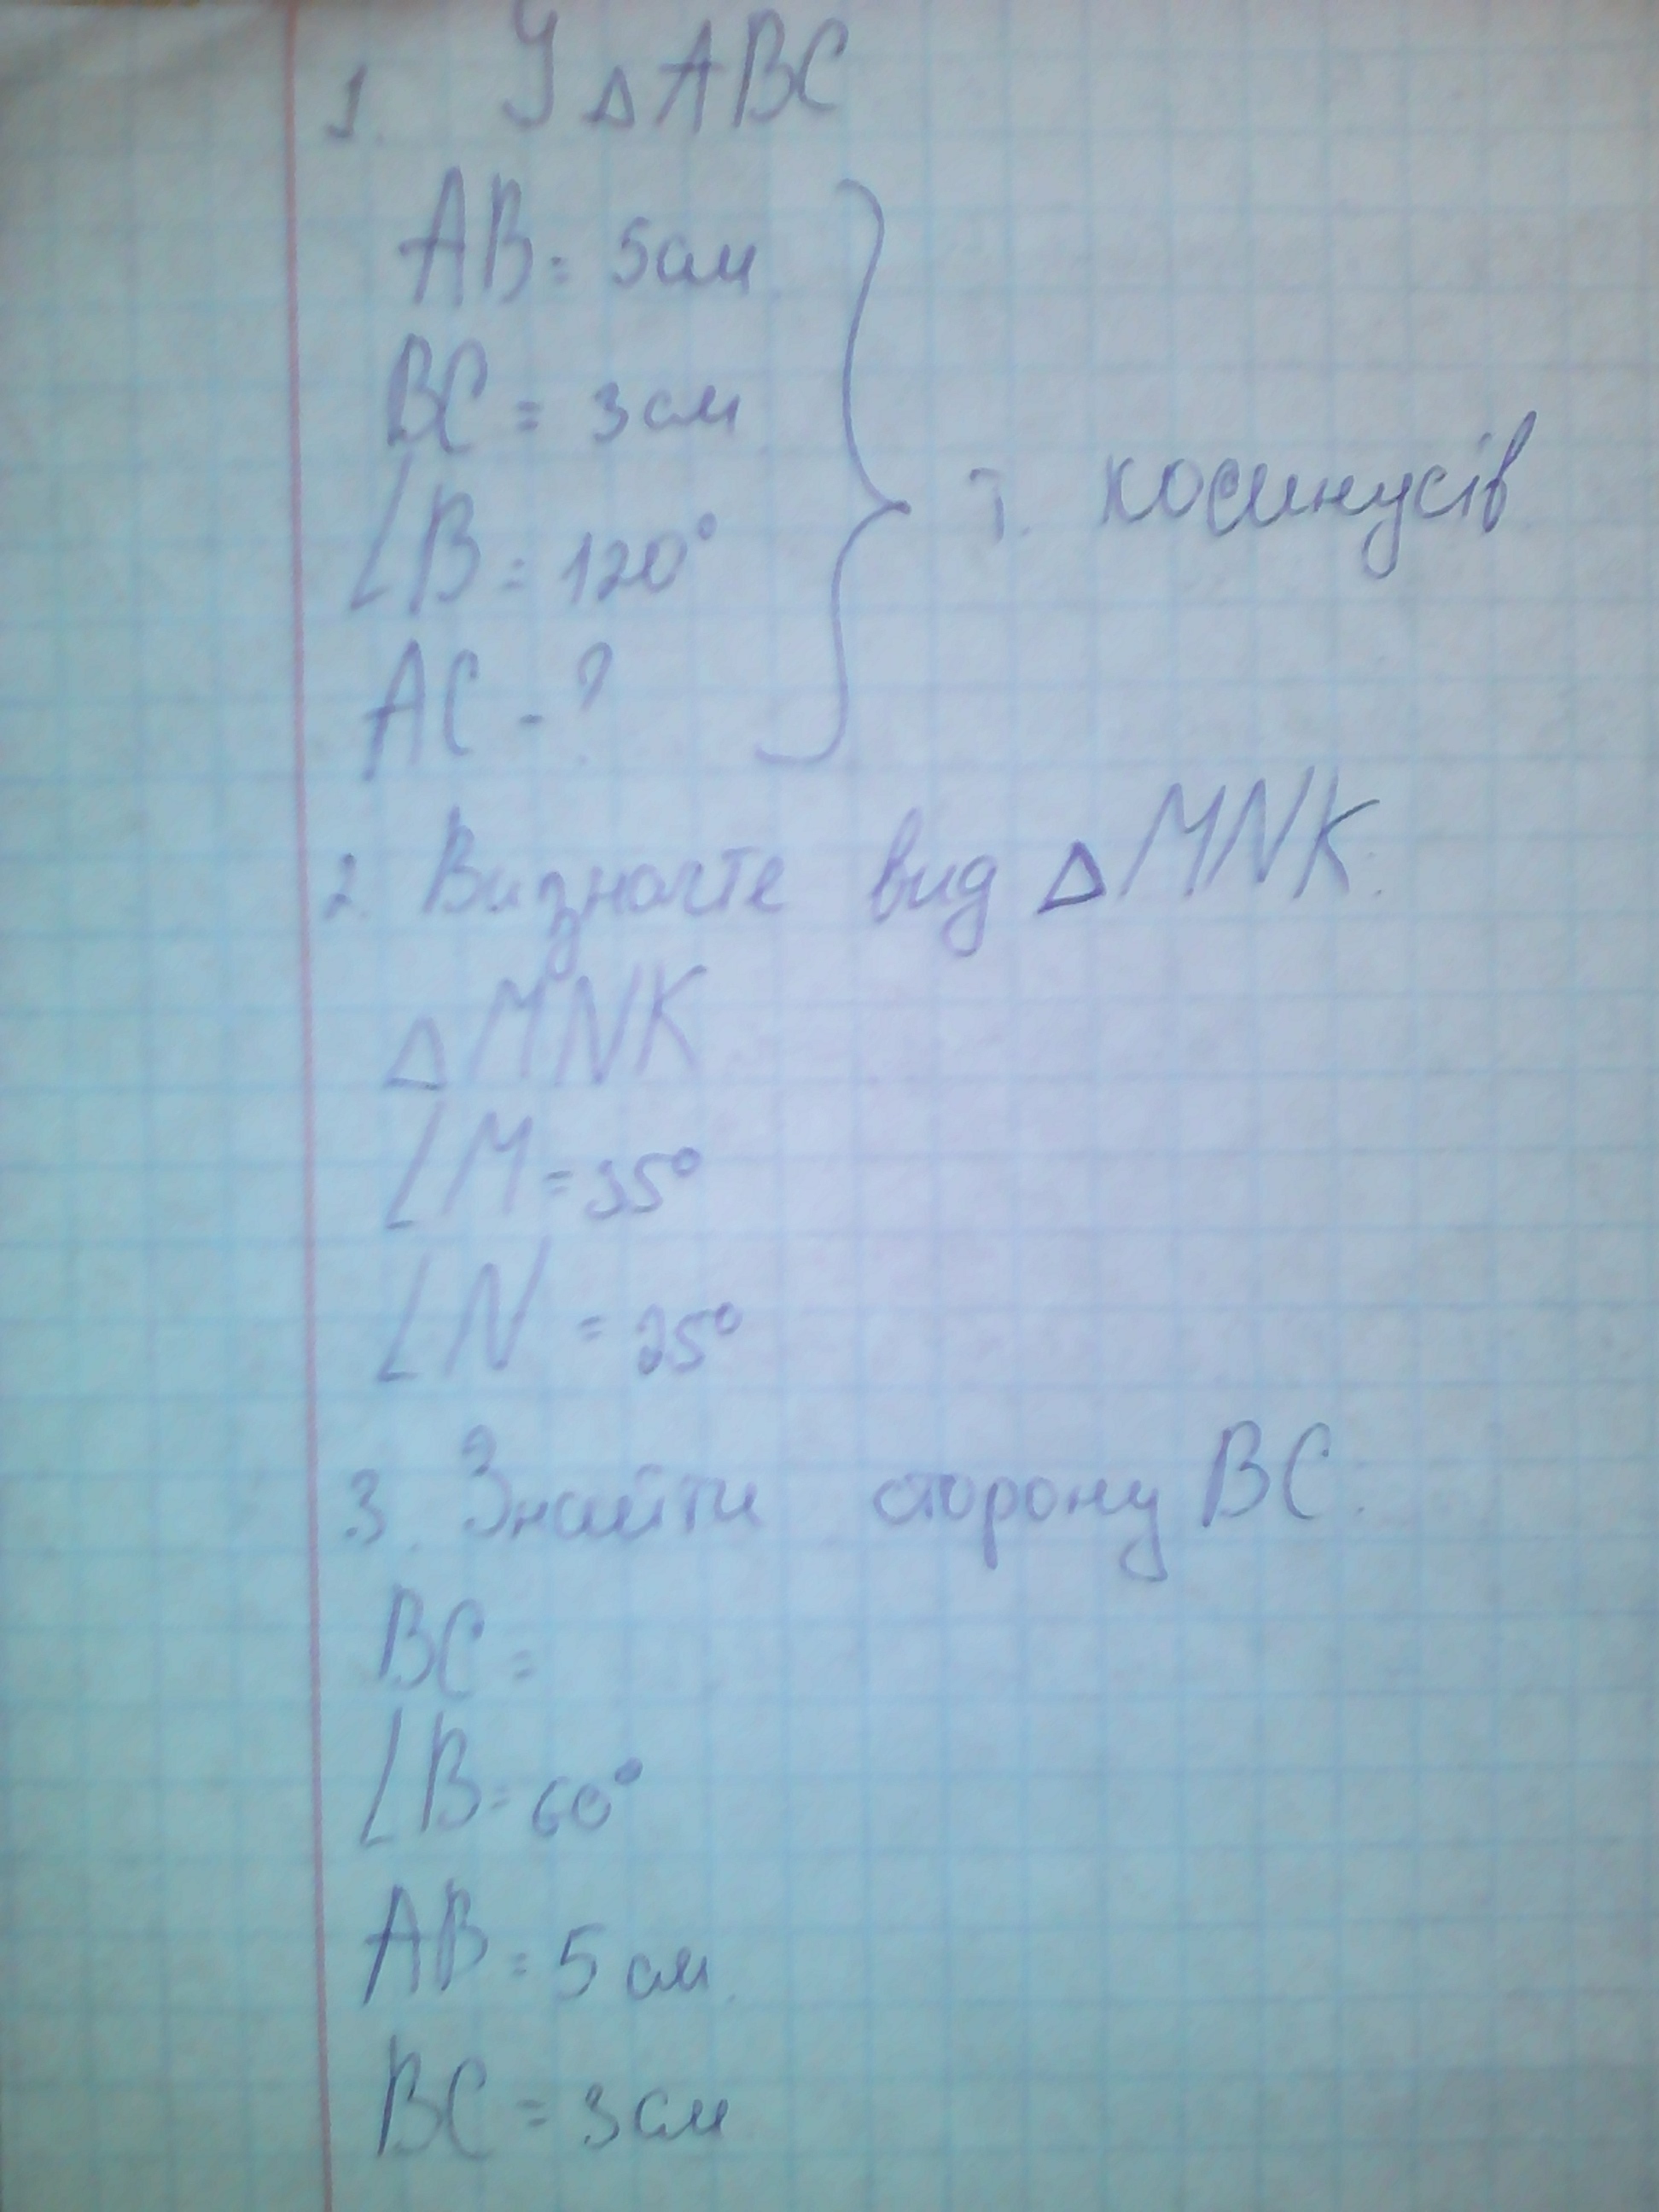 1. У △ABC
AB = 5см
BC = 3см
∠B = 120°
AC - ?
т. косинусів
2. Визначте вид △MNK.
△MNK
∠M = 35°
∠N = 25°
3. Знайти сторону BC.
BC =
∠B = 60°
AB = 5 см.
BC = 3см